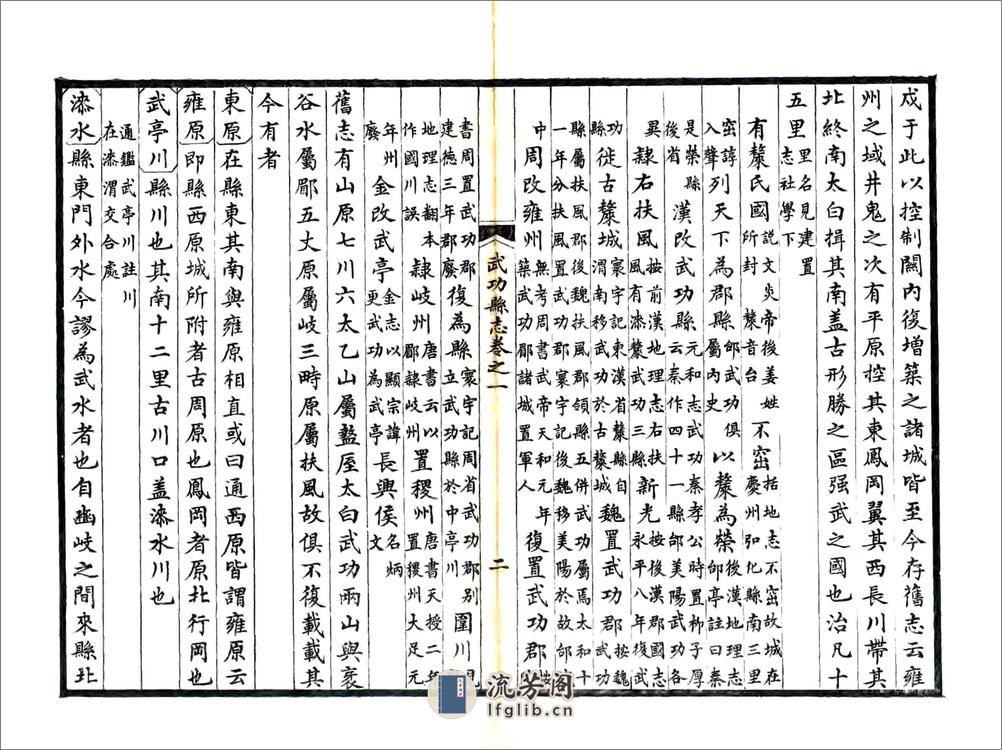 戍于此以控制關內復增築之諸城皆至今存舊志云雍
州之域井鬼之次有平原控其東鳳岡翼其西長川帶其
北終南太白揖其南盖古形勝之區强武之國也治凡十
五里
里名見建置
志社學下
有𨛬氏國
說文炎帝後姜姓
所封𨛬音台
不窋
括地志不窋故城在
慶州弘化縣南三里
窋諄
入聲
列天下為郡縣
邰武功俱
屬內史
以𨛬為漦
後漢地理志
邰亭註曰秦
是漦縣
後省
漢改武功縣
元和志武功秦孝公時置柳子厚
云秦作四十一縣邰美陽武功各
異
隸右扶風
按前漢地理志右扶
風有漦武功三縣
新光
按後漢郡國志
永平八年復武
功
縣
徙古𨛬城
寰宇記東漢省𨛬縣自
渭南移武功於古𨛬城
魏置武功郡
按魏
武功
縣屬扶風郡後魏扶風郡領縣五併武功屬焉太和十
一年分扶風置武功郡寰宇記後魏移美陽於故邰城
中
周改雍州
無考周書武帝天和元年
築武功郿諸城置軍人
復置武功郡
按
書周置武功郡
建德三年郡廢
復為縣
寰宇記周省武功郡别
立武功縣於中亭川
圍川
見
地理志翻本
作國川誤
隸岐州
唐書云以
郿隸岐州
置稷州
唐書天授二年
置稷州大足元
年州
廢
金改武亭
金志以顯宗諱
更武功為武亭
長興侯
名炳
文
舊志有山原七川六太乙山屬盩厔太白武功兩山與褒
谷水屬郿五丈原屬岐三時原屬扶風故俱不復載載其
今有者
東原在縣東其南與雍原相直或曰通西原皆謂雍原云
雍原即縣西原城所附者古周原也鳳岡者原北行岡也
武亭川縣川也其南十二里古川口盖漆水川也
通鑑武亭川註川
在漆渭交合處
漆水縣東門外水今謬為武水者也自豳岐之間來縣北
武功縣志卷之一
二
流芳阁
lfglib.cn